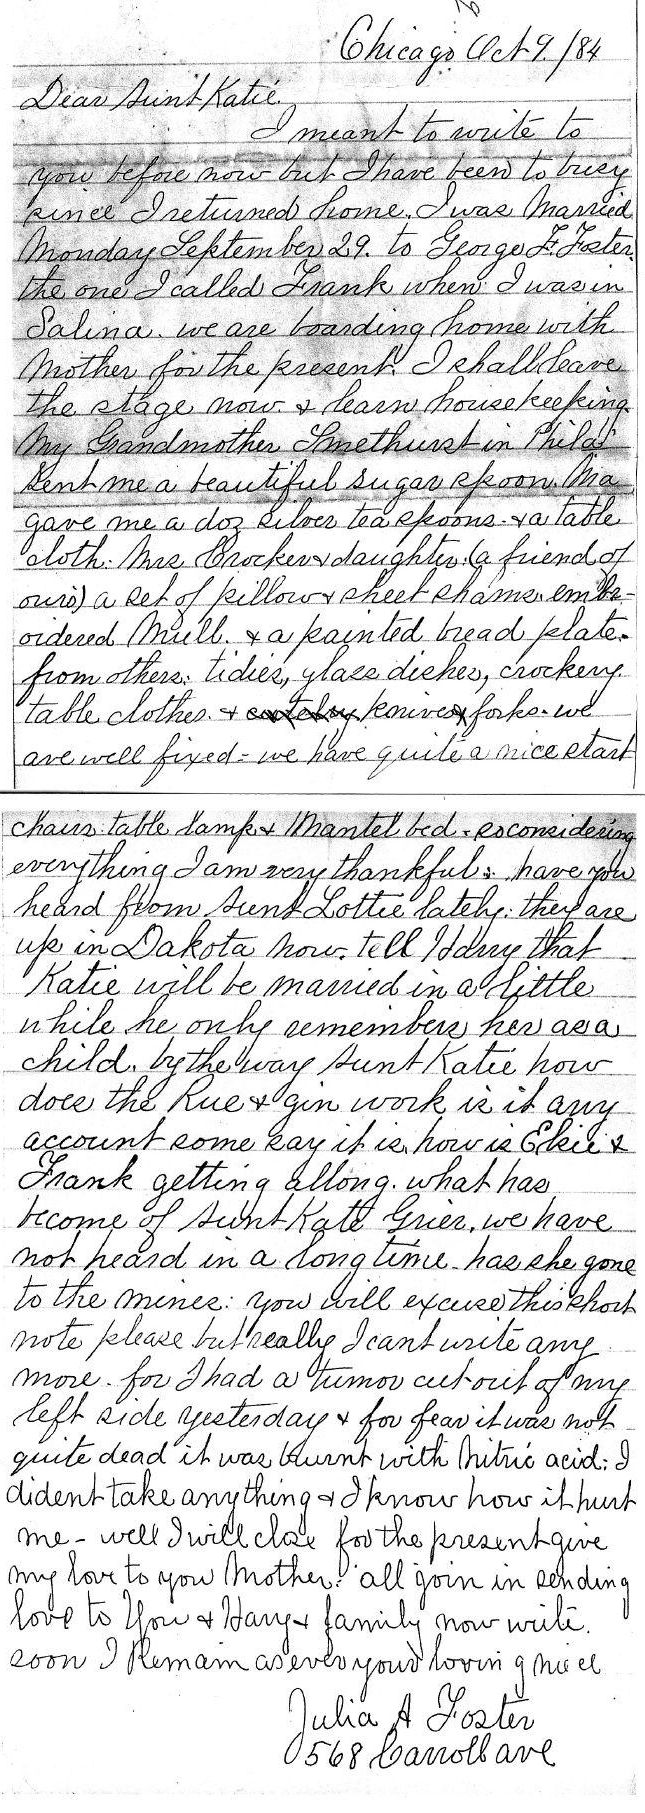 Chicago Oct 9. /84
Dear Aunt Katie.
I meant to write to
you before now but I have been to busy
since I returned home. I was Married
Monday September 29. to George F. Foster.
the one I called Frank when I was in
Salina. we are boarding home with
Mother for the present. I shall leave
the stage now. & learn housekeeping.
My Grandmother Smethurst in Phila
sent me a beautiful sugar spoon. Ma
gave me a doz silver tea spoons. & a table
cloth. Mrs Crocker & daughter. (a friend of
ours) a set of pillow & sheet shams. embr-
oidered Mull. & a painted bread plate.
from others. tidies, glass dishes, crockery.
table clothes. & knives & forks. we
are well fixed - we have quite a nice start
chairs. table lamp & Mantel bed. so considering
everything I am very thankful. have you
heard from Aunt Lottie lately. they are
up in Dakota now. tell Harry that
Katie will be married in a little
while he only remembers her as a
child. by the way Aunt Katie how
does the Rue & gin work is it any
account some say it is. how is Elsie &
Frank getting allong. what has
become of Aunt Kate Grier. we have
not heard in a long time. has she gone
to the mines: you will excuse this short
note please but really I cant write any
more. for I had a tumor cut out of my
left side yesterday & for fear it was not
quite dead it was burnt with Nitric acid: I
dident take anything & I know how it hurt
me - well I will close for the present give
my love to you Mother. all join in sending
love to You & Hary & family now write.
soon I Remain as ever your loving niece
Julia A Foster
568 Carroll ave